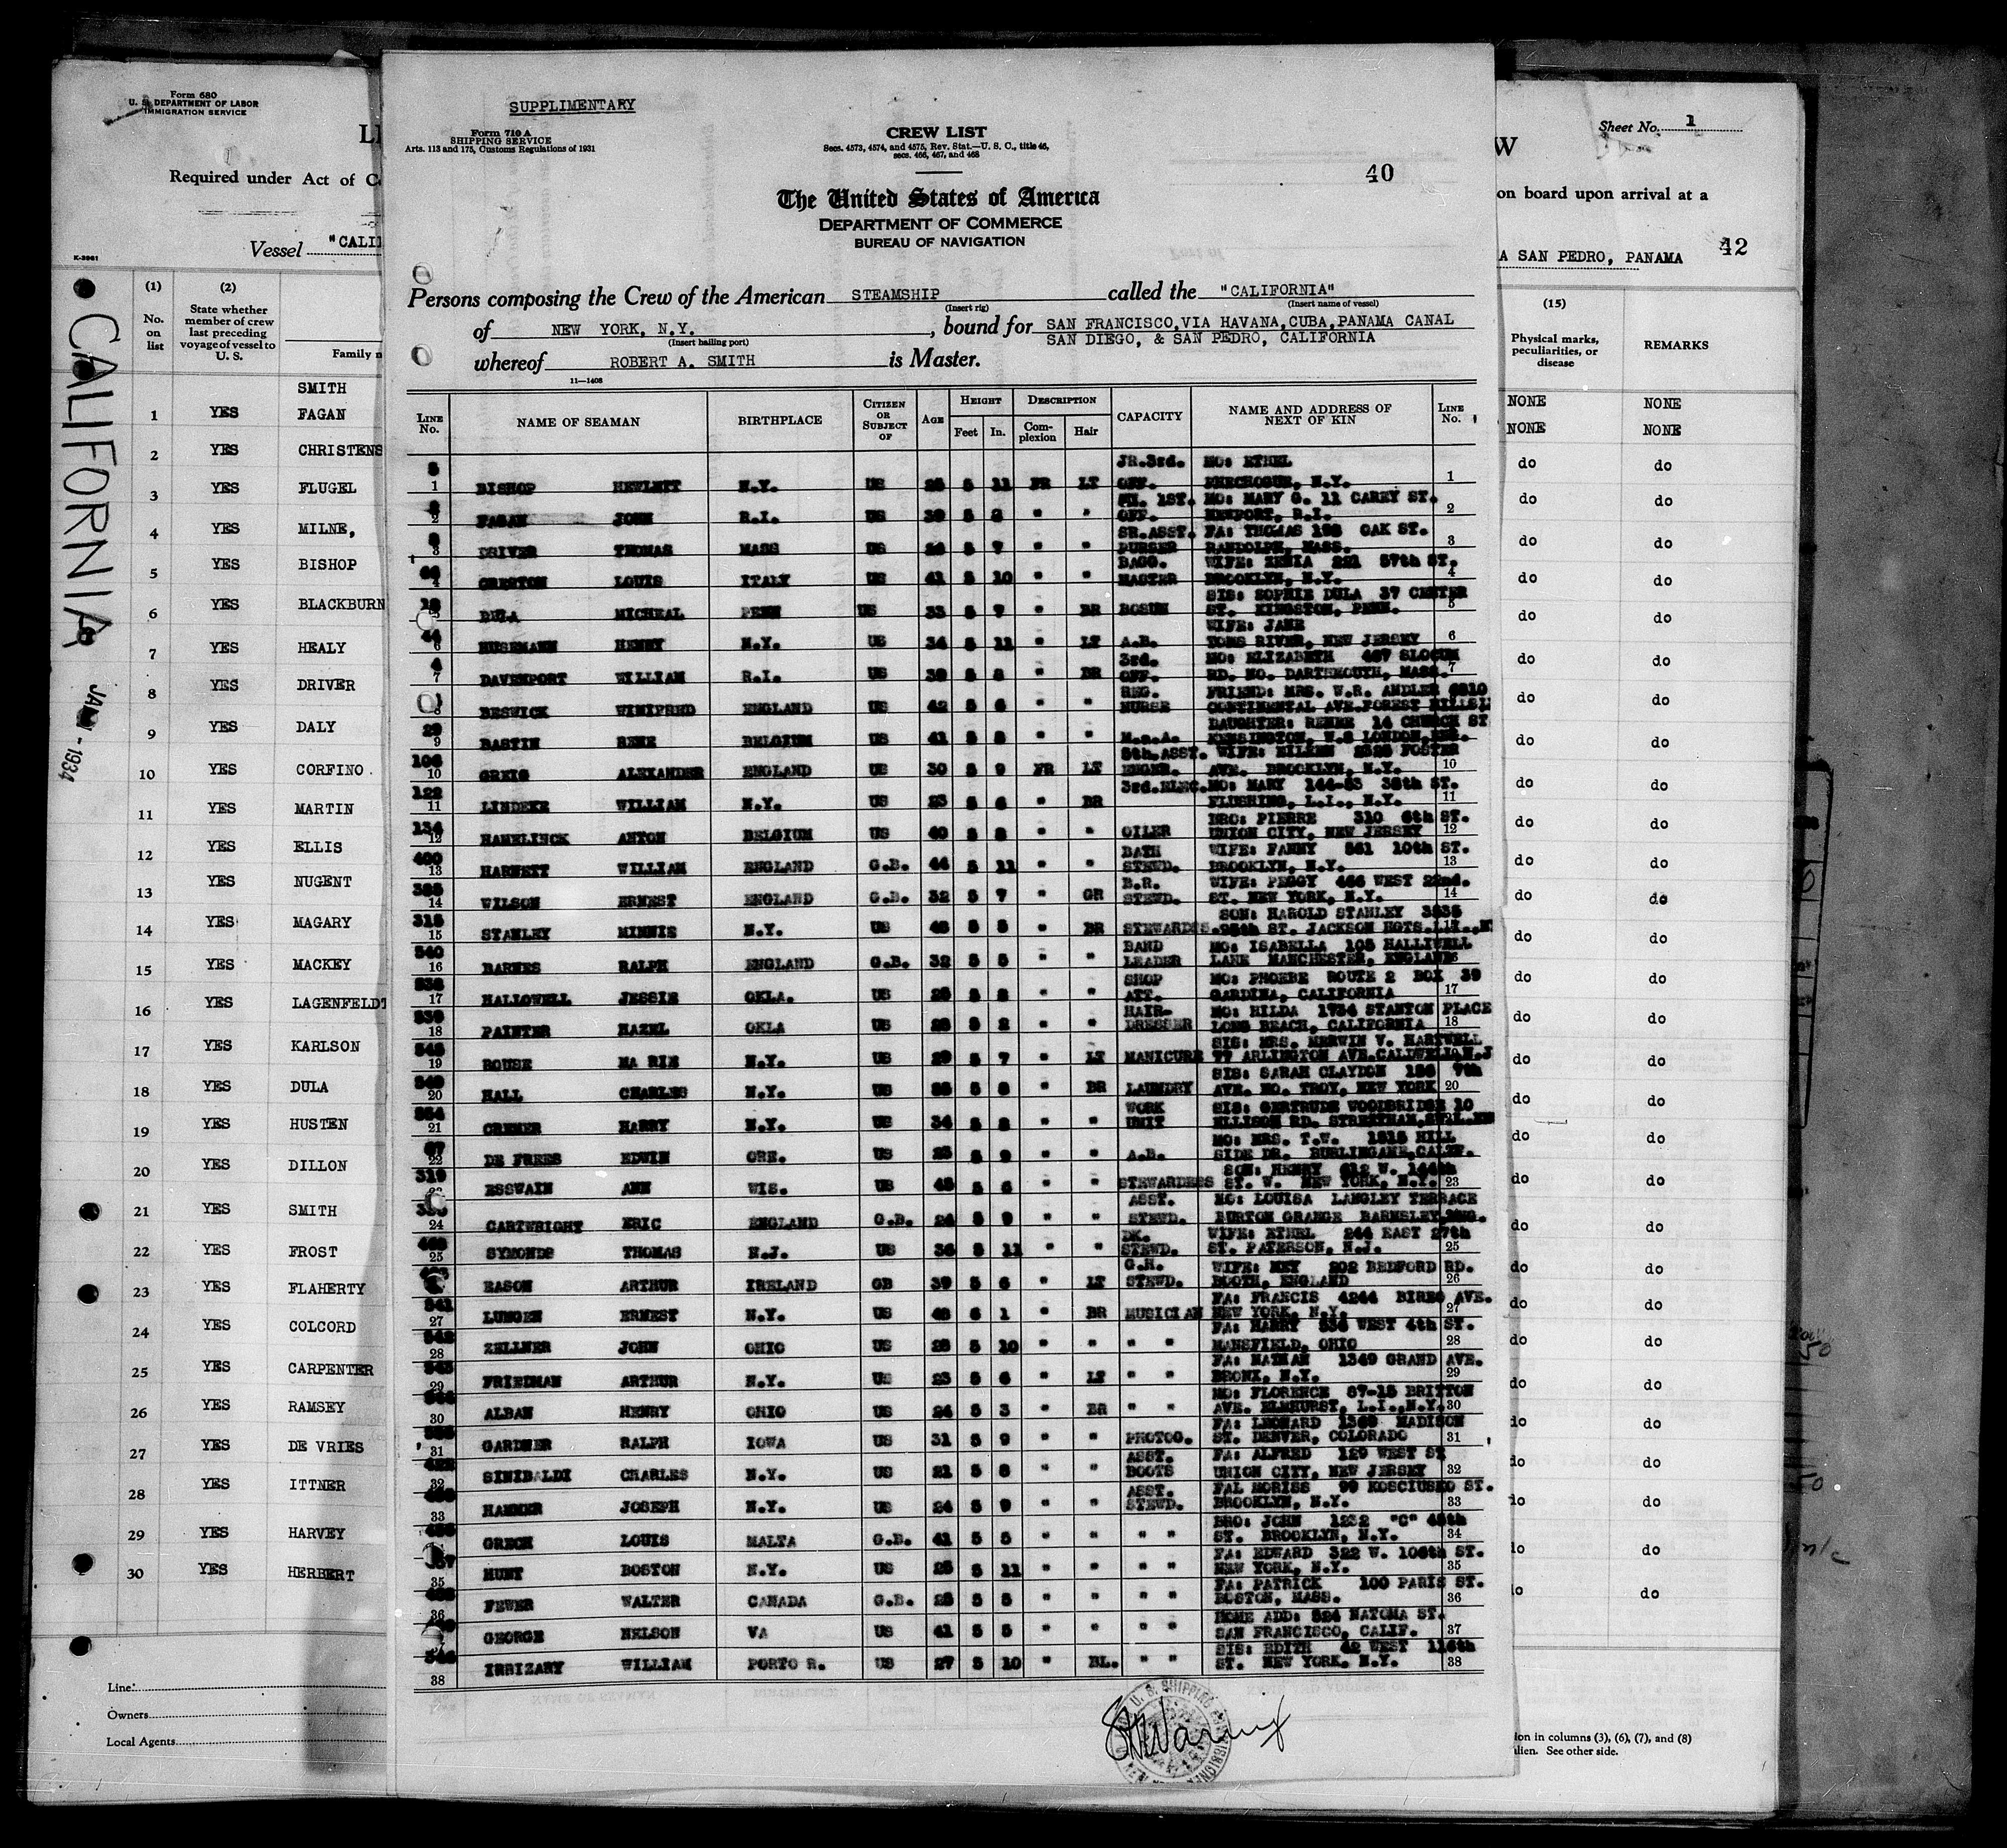 Form 680
U. S. DEPARTMENT OF LABOR
IMMIGRATION SERVICE
Required under Act of
Vessel "CALI
K-3961
(1) (2)
No. on list
State whether member of crew last preceding voyage of vessel to U. S.
Family n
SMITH
1 YES FAGAN
2 YES CHRISTENS
3 YES FLUGEL
4 YES MILNE,
5 YES BISHOP
6 YES BLACKBURN
7 YES HEALY
8 YES DRIVER
9 YES DALY
10 YES CORFINO.
11 YES MARTIN
12 YES ELLIS
13 YES NUGENT
14 YES MAGARY
15 YES MACKEY
16 YES LAGENFELDT
17 YES KARLSON
18 YES DULA
19 YES HUSTEN
20 YES DILLON
21 YES SMITH
22 YES FROST
23 YES FLAHERTY
24 YES COLCORD
25 YES CARPENTER
26 YES RAMSEY
27 YES DE VRIES
28 YES ITTNER
29 YES HARVEY
30 YES HERBERT
Line
Owners
Local Agents
CALIFORNIA
JAN - 1934
SUPPLIMENTARY
Form 710 A
SHIPPING SERVICE
Arts. 113 and 175, Customs Regulations of 1931
CREW LIST
Secs. 4573, 4574, and 4575, Rev. Stat.—U. S. C., title 46,
secs. 466, 467, and 468
40
The United States of America
DEPARTMENT OF COMMERCE
BUREAU OF NAVIGATION
Persons composing the Crew of the American STEAMSHIP called the "CALIFORNIA"
(Insert rig) (Insert name of vessel)
of NEW YORK, N.Y. , bound for SAN FRANCISCO,VIA HAVANA,CUBA,PANAMA CANAL
(Insert hailing port) SAN DIEGO, & SAN PEDRO, CALIFORNIA
whereof ROBERT A. SMITH is Master.
11—1408
LINE No. NAME OF SEAMAN BIRTHPLACE CITIZEN OR SUBJECT OF AGE HEIGHT Feet In. DESCRIPTION Complexion Hair CAPACITY NAME AND ADDRESS OF NEXT OF KIN LINE No.
JR.3rd. MO: ETHEL
1 BISHOP HEWLETT N.Y. US 5 11 FR LT OFF. N.Y. 1
1ST. MO: MARY G. 11 CAREY ST.
2 FAGAN JOHN R.I. US 5 " " OFF. NEWPORT, R.I. 2
SR.ASST. FA: THOMAS OAK ST.
3 DRIVER THOMAS MASS US 5 7 " " PURSER RANDOLPH, MASS. 3
BAGG. WIFE: XENIA 221 57th ST.
4 LOUIS ITALY US 41 5 10 " " MASTER BROOKLYN, N.Y. 4
SIS: SOPHIE DULA 37 CENTER
5 DULA MICHEAL PENN US 33 5 7 " BR BOSUN ST. KINGSTON, PENN. 5
WIFE: JANE
6 HUSEMANN HENRY N.Y. US 34 5 11 " LT A.B. TOMS RIVER, NEW JERSEY 6
3rd. MO: ELIZABETH 467 SLOCUM
7 DAVENPORT WILLIAM R.I. US 5 8 " BR OFF. RD. NO. DARTSMOUTH, MASS. 7
REG. FRIEND: MRS. W.R. ANDLER 6810
8 BESWICK WINIFRED ENGLAND US 42 5 6 " " NURSE CONTINENTAL AVE.FOREST HILLS
DAUGHTER: RENEE 14 CHURCH ST
9 BASTIN RENE BELGIUM US 41 5 8 " " M.a.A. KENSINGTON, W.8 LONDON,ENG.
5th.ASST. WIFE: EILEEN 2328 FOSTER
106 10 GREIG ALEXANDER ENGLAND US 30 5 9 FR LT ENGNR. AVE. BROOKLYN, N.Y. 10
3rd.ELEC. MO: MARY 144-53 38th ST.
122 11 LINDEKE WILLIAM N.Y. US 23 5 6 " BR FLUSHING, L.I., N.Y. 11
BRO: PIERRE 310 6th ST.
134 12 HAMELINCK ANTON BELGIUM US 40 5 8 " " OILER UNION CITY, NEW JERSEY 12
BATH WIFE: FANNY 561 10th ST.
400 13 HARNETT WILLIAM ENGLAND G.B. 44 5 11 " " STEWD. BROOKLYN, N.Y. 13
B.R. WIFE: PEGGY 466 WEST 22nd.
385 14 WILSON ERNEST ENGLAND G.B. 32 5 7 " GR STEWD. ST. NEW YORK, N.Y. 14
SON: HAROLD STANLEY 3535
315 15 STANLEY MINNIE N.Y. US 5 5 " BR STEWARDESS. ST. JACKSON HGTS.L.I.,N
BAND MO: ISABELLA 105 HALLIWELL
540 16 BARNES RALPH ENGLAND G.B. 32 5 5 " " LEADER LANE MANCHESTER, ENGLAND
SHOP MO: PHOEBE ROUTE 2 BOX 39
17 HALLOWELL JESSIE OKLA. US 5 " " ATT. GARDINA, CALIFORNIA 17
HAIR- MO: HILDA 1734 STANTON PLACE
18 PAINTER HAZEL OKLA US 5 2 " " DRESSER LONG BEACH, CALIFORNIA 18
SIS: MRS. MERWIN V. HARTWELL
19 ROUSE MARIE N.Y. US 29 5 7 " LT MANICURE 77 ARLINGTON AVE.CALDWELL,N.J
SIS: SARAH CLAYDON 7th
20 HALL CHARLES N.Y. US 5 8 " BR LAUNDRY AVE. NO. TROY, NEW YORK 20
WORK SIS: GERTRUDE WOODBRIDGE 10
21 CREMER HARRY N.Y. US 34 5 8 " " UNIT ELLISON RD. STREETHAM,
MO: MRS. T.W. 1515 HILL
22 DE FREES EDWIN ORE. US 5 9 " " A.B. SIDE DR. BURLINGAME,CALIF.
SON: HENRY 612 W. 144th
319 ESSWAIN ANN WIS. US 5 6 " " STEWARDESS ST. W. NEW YORK, N.Y. 23
ASST. MO: LOUISA LANGLEY TERRACE
24 CARTWRIGHT ERIC ENGLAND G.B. 24 5 9 " " STEWD. BURTON GRANGE BARNSLEY,ENG.
DK. WIFE: ETHEL 244 EAST 27th
25 SYMONDS THOMAS N.J. US 36 5 11 " " STEWD. ST. PATERSON, N.J. 25
G.H. WIFE: MEY 202 BEDFORD RD.
EASON ARTHUR IRELAND GB 39 5 6 " LT STEWD. BOOTH, ENGLAND 26
FA: FRANCIS 4244 AVE.
541 27 LUNGEN ERNEST N.Y. US 6 1 " BR MUSICIAN NEW YORK, N.Y. 27
FA: HARRY 536 WEST 4th ST.
542 28 ZELLNER JOHN OHIO US 5 10 " " " " MANSFIELD, OHIO 28
FA: NATHAN 1349 GRAND AVE.
543 29 FRIEDMAN ARTHUR N.Y. US 23 5 6 " LT " " BRONX, N.Y. 29
MO: FLORENCE 87-15 BRITTON
30 ALBAN HENRY OHIO US 24 5 3 " BR " " AVE. ELMHURST, L.I.,N.Y. 30
FA: LEONARD MADISON
31 GARDNER RALPH IOWA US 31 5 9 " " PHOTOG. ST. DENVER, COLORADO 31
ASST. FA: ALFRED 129 WEST ST
32 SINIBALDI CHARLES N.Y. US 21 5 8 " " BOOTS UNION CITY, NEW JERSEY 32
ASST. FAL MORISS 99 KOSCIUSKO ST.
33 HAMMER JOSEPH N.Y. US 24 5 9 " " STEWD. BROOKLYN, N.Y. 33
BRO: JOHN 1232 "C" 45th
GRECH LOUIS MALTA G.B. 41 5 5 " " " " ST. BROOKLYN, N.Y. 34
FA: EDWARD 322 W. 106th ST.
35 HUNT BOSTON N.Y. US 5 11 " " " " NEW YORK, N.Y. 35
FA: PATRICK 100 PARIS ST.
36 FEWER WALTER CANADA G.B. 5 5 " " " " BOSTON, MASS. 36
HOME ADD: 524 NATOMA ST.
GEORGE NELSON VA US 41 5 5 " " " " SAN FRANCISCO, CALIF. 37
SIS: EDITH 42 WEST 116th
38 IRRIZARY WILLIAM PORTO R. US 27 5 10 " BL. " " ST. NEW YORK, N.Y. 38
U. S. SHIPPING COMMISSIONER
Sheet No. 1
W
on board upon arrival at a
A SAN PEDRO, PANAMA 42
(15)
Physical marks, peculiarities, or disease
REMARKS
NONE NONE
NONE NONE
do do
do do
do do
do do
do do
do do
do do
do do
do do
do do
do do
do do
do do
do do
do do
do do
do do
do do
do do
do do
do do
do do
do do
do do
do do
do do
do do
do do
do do
ion in columns (3), (6), (7), and (8)
alien. See other side.